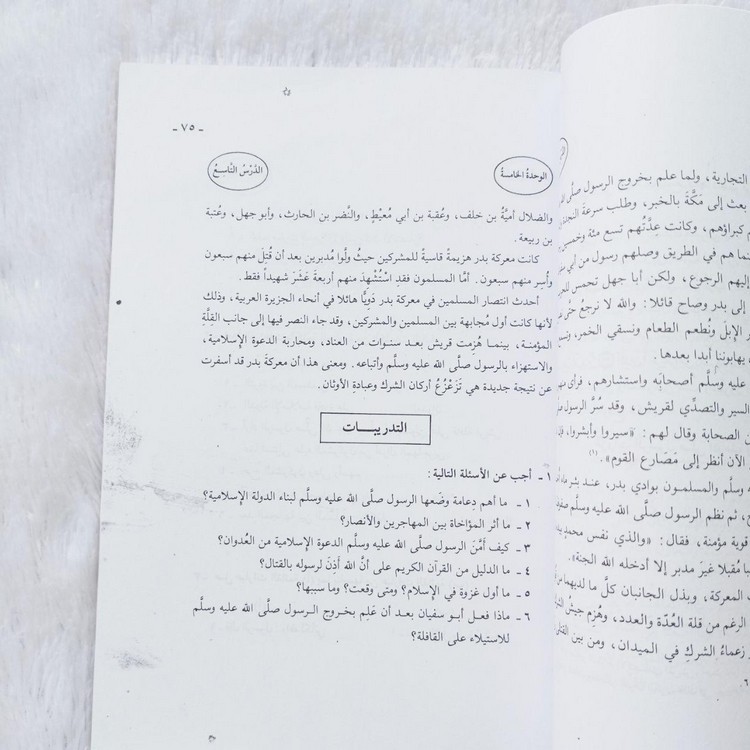 التجارية، ولما علم بخروج الرسول صلَّى
بعث إلى مَكَّةَ بالخبر، وطلب سرعةَ النجدة
كبراؤهم، وكانت عِدَّتُهم تسع مئة وخمسين
هم في الطريق وصلهم رسول من أبي
إليهم الرجوع، ولكن أبا جهل تحمس
إلى بدر وصاح قائلا: والله لا نرجعُ حتى
الإبلَ ونُطعم الطعام ونسقي الخمر،
يهابوننا أبدا بعدها.
عليه وسلَّم أصحابَه واستشارهم،
السير والتصدِّي لقريش، وقد سُرَّ الرسول
الصحابة وقال لهم: «سيروا وأبشروا،
الآن أنظر إلى مَصَارع القوم».(١)
وسلَّم والمسلمون بوادي بدر، عند
ثم نظم الرسول صلَّى الله عليه وسلَّم
قوية مؤمنة، فقال: «والذي نفس محمد
مُقبلا غيرَ مدبر إلا أدخله الله الجنة».
المعركة، وبذل الجانبان كلَّ ما لديهما
الرغم من قلة العُدّة والعدد، وهُزم جيشُ
زعماءُ الشركِ في الميدان، ومن بين
- ٧٥ -
الوحدةُ الخامسةُ
الدَّرسُ التَّاسِعُ
والضلال أميَّةُ بن خلف، وعُقبة بن أبي مُعيْطٍ، والنَّضر بن الحارث، وأبو جهل، وعُتبة
بن ربيعة.
كانت معركة بدر هزيمةً قاسية للمشركين حيثُ ولَّوا مُدبرين بعد أن قُتِلَ منهم سبعون
وأُسِر منهم سبعون. أمَّا المسلمون فقدِ اسْتُشْهِدَ منهم أربعةَ عَشَرَ شهيداً فقط.
أحدث انتصار المسلمين في معركة بدر دَويًّا هائلا في أنحاء الجزيرة العربية، وذلك
لأنها كانت أول مُجابهة بين المسلمين والمشركين، وقد جاء النصر فيها إلى جانب القِلَّةِ
المؤمنة، بينما هُزمت قريش بعد سنوات من العناد، ومحاربة الدعوة الإسلامية،
والاستهزاء بالرسول صلَّى الله عليه وسلَّم وأتباعه. ومعنى هذا أن معركةَ بدر قد أسفرت
عن نتيجة جديدة هي تَزَعْزُعُ أركان الشرك وعبادةِ الأوثان.
التدريبـــات
١ - أجب عن الأسئلة التالية:
١ - ما أهم دِعامة وضَعها الرسول صلَّى الله عليه وسلَّم لبناء الدولة الإسلامية؟
٢ - ما أثر المؤاخاة بين المهاجرين والأنصار؟
٣ - كيف أمَّنَ الرسول صلَّى الله عليه وسلَّم الدعوة الإسلامية من العُدوان؟
٤ - ما الدليل من القرآن الكريم على أنَّ الله أذِنَ لرسوله بالقتال؟
٥ - ما أول غزوة في الإسلام؟ ومتى وقعت؟ وما سببها؟
٦ - ماذا فعل أبو سفيان بعد أن عَلِم بخروج الرسول صلَّى الله عليه وسلَّم
للاستيلاء على القافلة؟